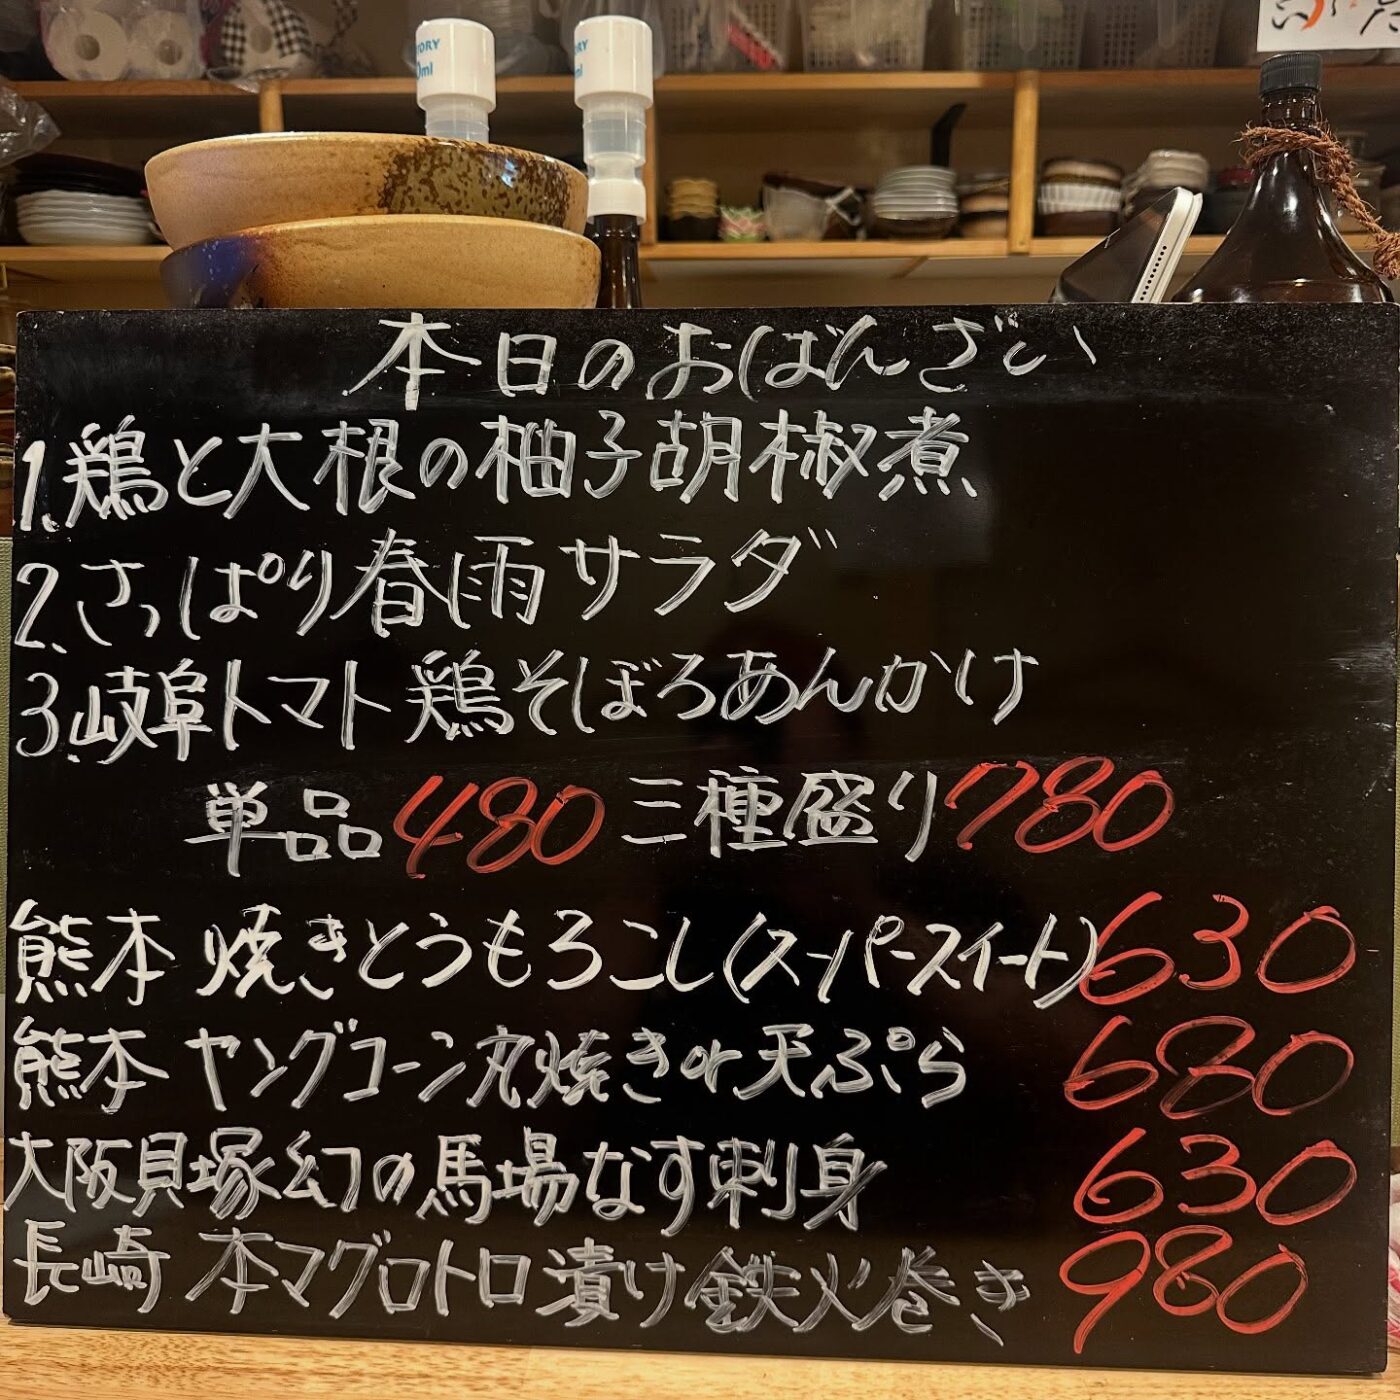 ORY
0ml
ORY
ml
本日のおばんざい
1.鶏と大根の柚子胡椒煮
2.さっぱり春雨サラダ
3.岐阜トマト鶏そぼろあんかけ
単品480 三種盛り780
熊本 焼きとうもろこし(スーパースイート)630
熊本 ヤングコーン丸焼きor天ぷら 680
大阪貝塚幻の馬場なす刺身 630
長崎 本マグロトロ漬け鉄火巻き 980